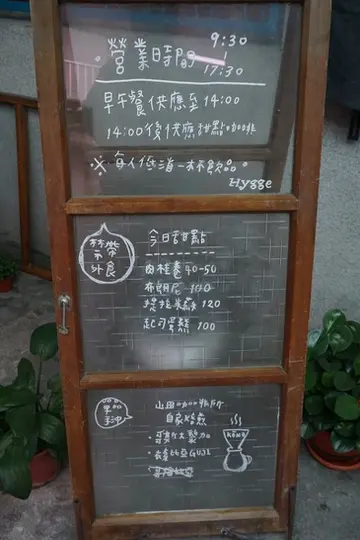 ·營業時間 9:30
|
17:30
早午餐供應至14:00
14:00後供應甜點咖啡
※每人低消一杯飲品。
Hygge
禁帶外食
今日甜點
肉桂捲 40-50
布朗尼 100
提拉米蘇 120
起司蛋糕 100
單品手沖
山田咖啡所
自家焙煎
KONO